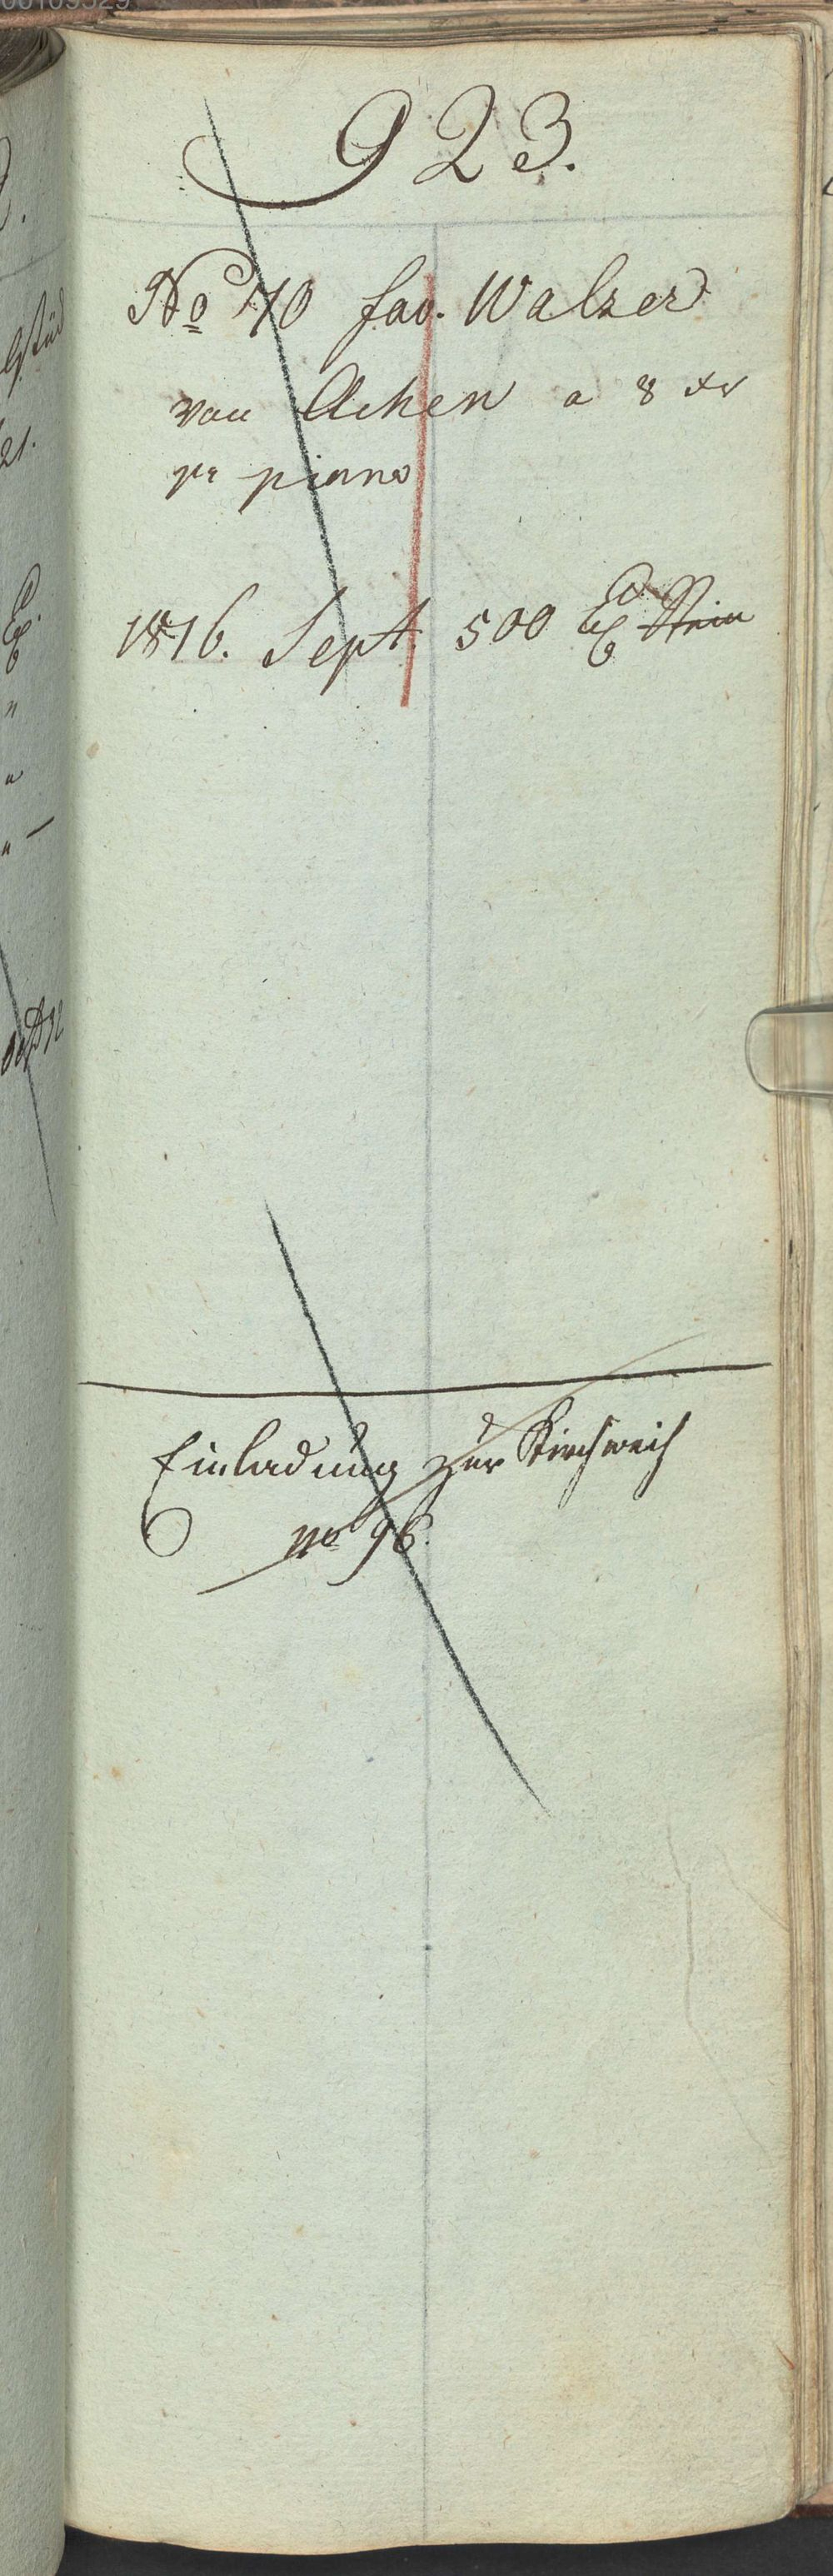 923.
No 70 fav. Walzer
von Achen a 8 xr
pr piano
1816. Sept. 500 Ex Stein
Einladung zur Kirchweih
no 96.